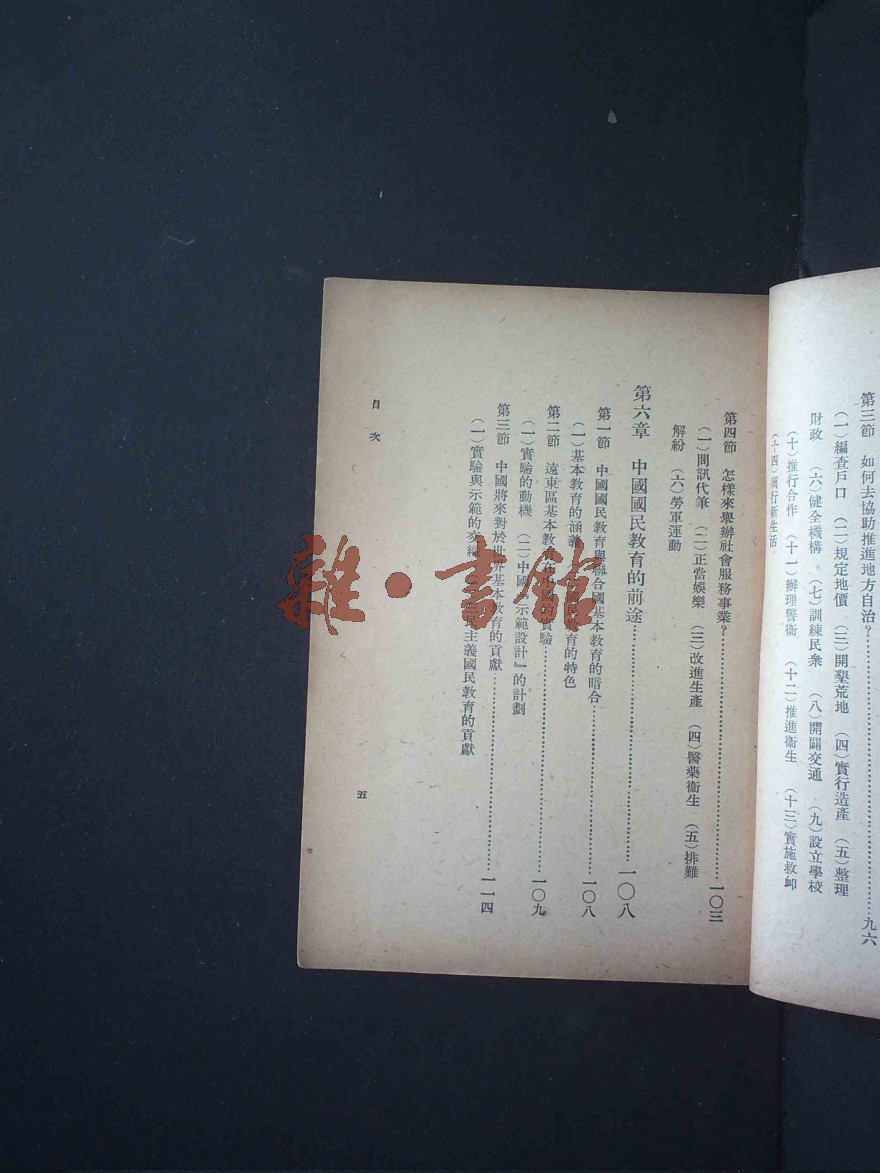 第三節　如何去協助推進地方自治？……九六
（一）編查戶口　（二）規定地價　（三）開墾荒地　（四）實行造產　（五）整理
財政　（六）健全機構　（七）訓練民衆　（八）開闢交通　（九）設立學校
（十）推行合作　（十一）辦理警衞　（十二）推進衞生　（十三）實施救卹
（十四）厲行新生活
第四節　怎樣來舉辦社會服務事業？……一〇三
（一）問訊代筆　（二）正當娛樂　（三）改進生產　（四）醫藥衞生　（五）排難
解紛　（六）勞軍運動
第六章　中國國民教育的前途……一〇八
第一節　中國國民教育與聯合國基本教育的暗合……一〇八
（一）基本教育的涵義　民教育的特色
第二節　遠東區基本教育在中國的實驗……一〇九
（一）實驗的動機　（二）中國『示範設計』的計劃
第三節　中國將來對於世界基本教育的貢獻……一一四
（一）實驗與示範的交　民主義國民教育的貢獻
目次
五
雜·書館